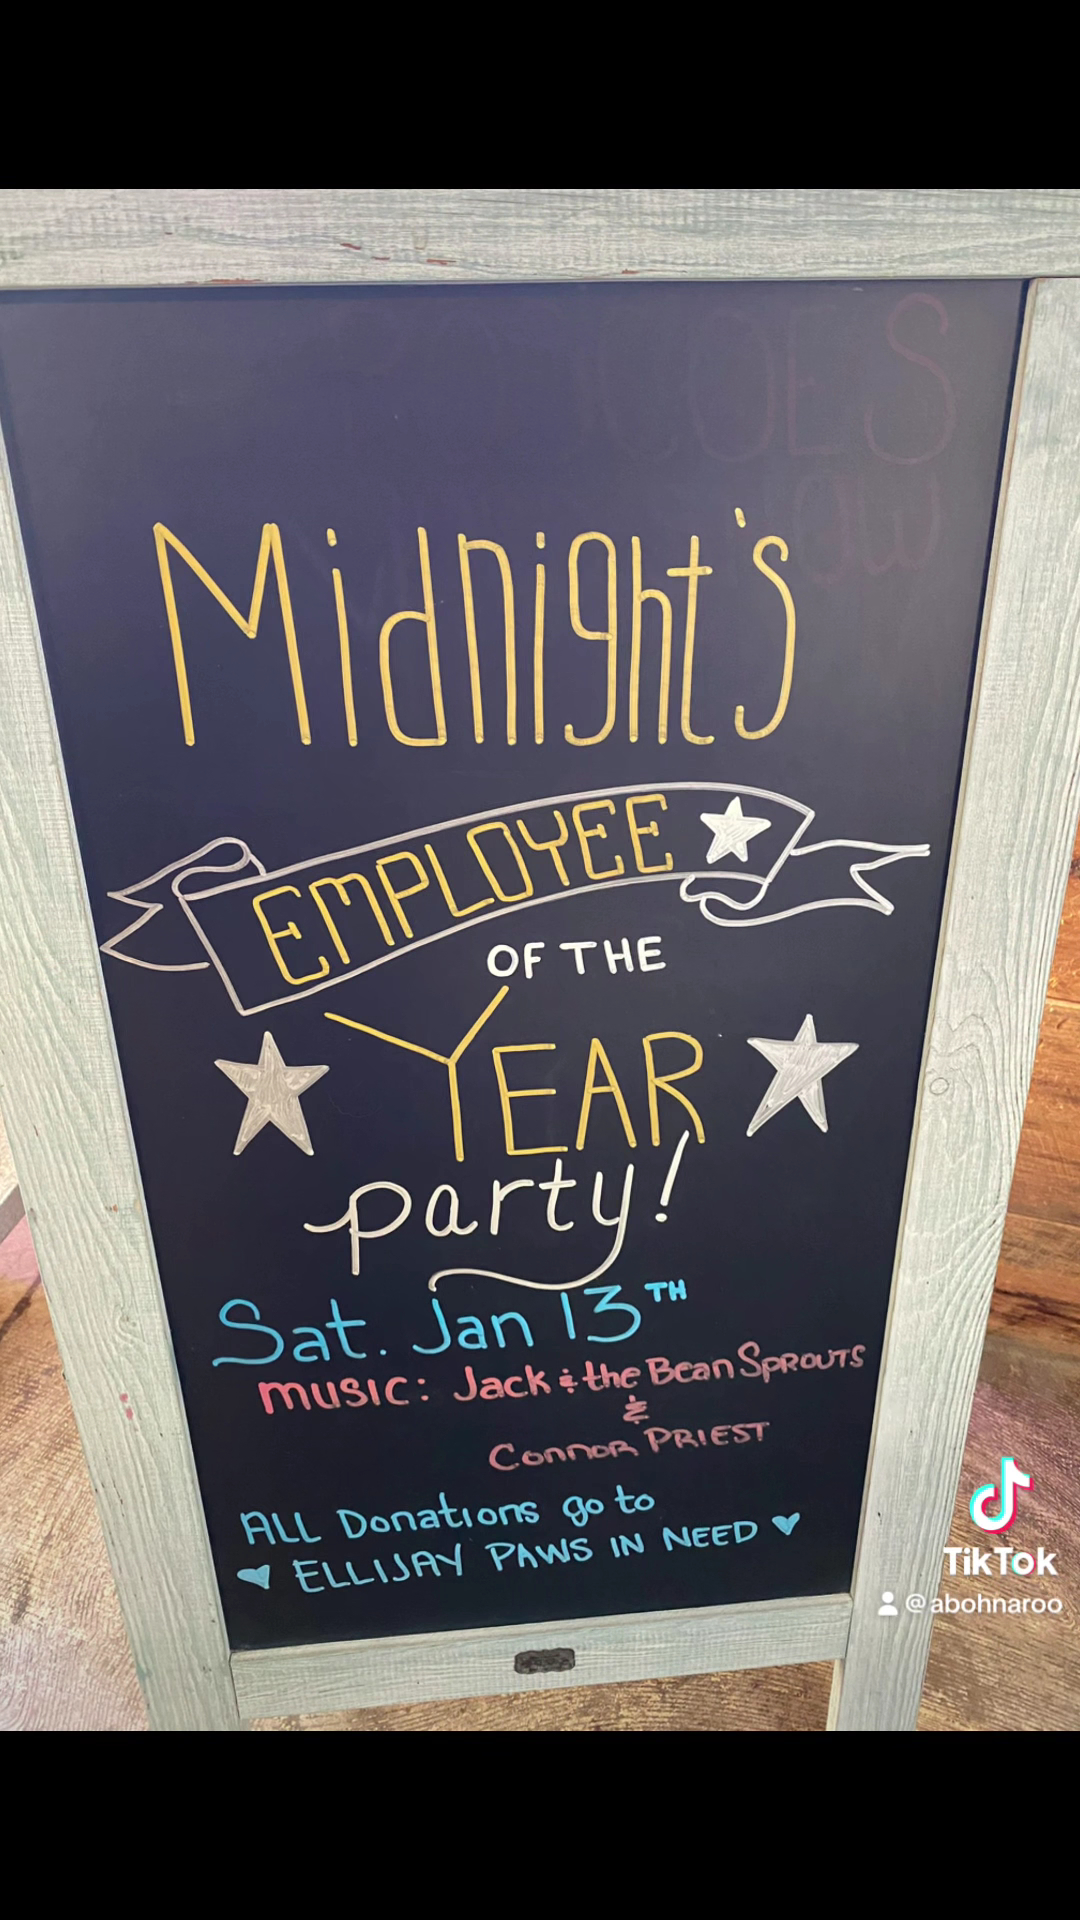 Midnight's
EMPLOYEE
OF THE
YEAR
party!
Sat. Jan 13TH
MUSIC: Jack & the Bean SPROUTS
&
Connor PRIEST
ALL Donations go to
ELLIJAY PAWS IN NEED
TikTok
@abohnaroo